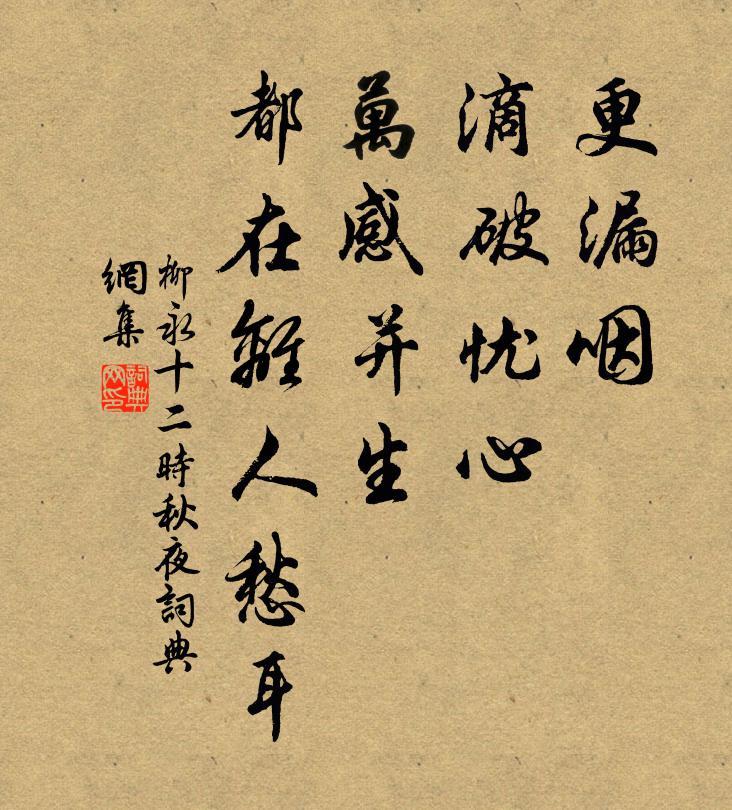 更漏咽
滴破忧心
萬感并生
都在離人愁耳
柳永十二時秋夜詞典
網集
詞典
网印